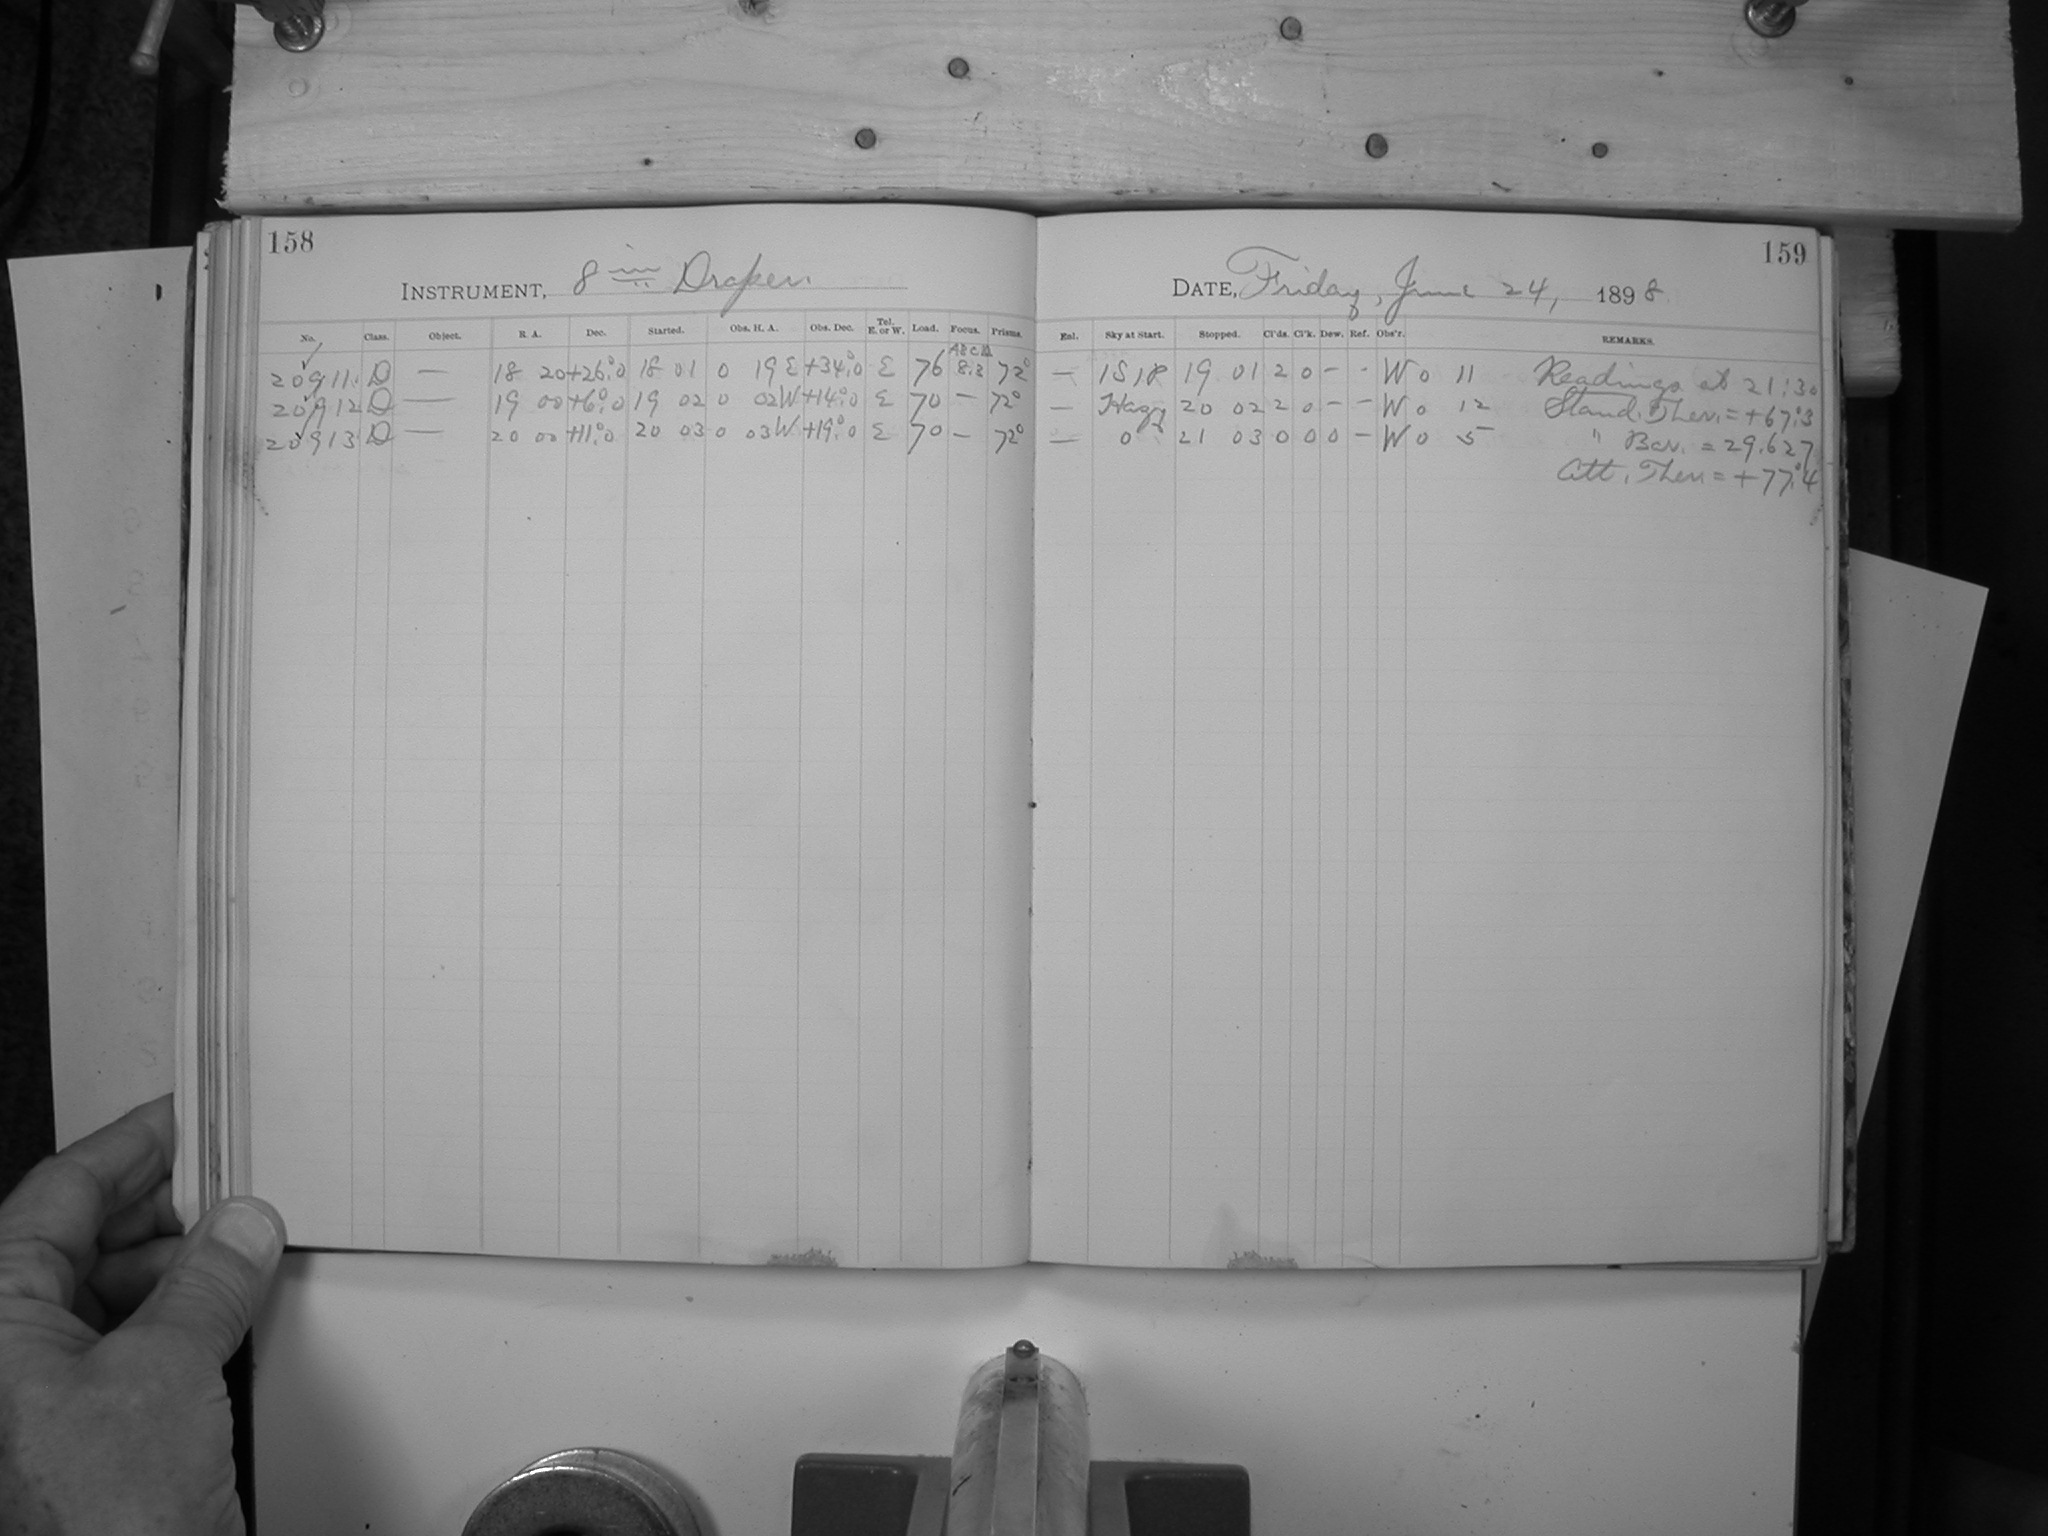 158
159
INSTRUMENT, 8 in Draper.
DATE, Friday, June 24, 1898
No. Class. Object. R. A. Dec. Started. Obs. H. A. Obs. Dec. Tel. E. or W. Load. Focus. Prisms. Enl. Sky at Start. Stopped. Cl'ds. Cl'k. Dew. Ref. Obs'r. REMARKS.
20911 D — 18 20 +26°.0 18 01 0 19 E +34°.0 E 76 8.3 72° — 1S18 19 01 2 0 - - W 0 11 Readings at 21:30
20912 D — 19 00 +6°.0 19 02 0 02 W +14°.0 E 70 — 72° — Hazy 20 02 2 0 - - W 0 12 Stand. Ther. = +67°.3
20913 D — 20 00 +11°.0 20 03 0 03 W +19°.0 E 70 — 72° — 0 21 03 0 0 0 - W 0 5 " Bar. = 29.627
Att. Ther. = +77°.4